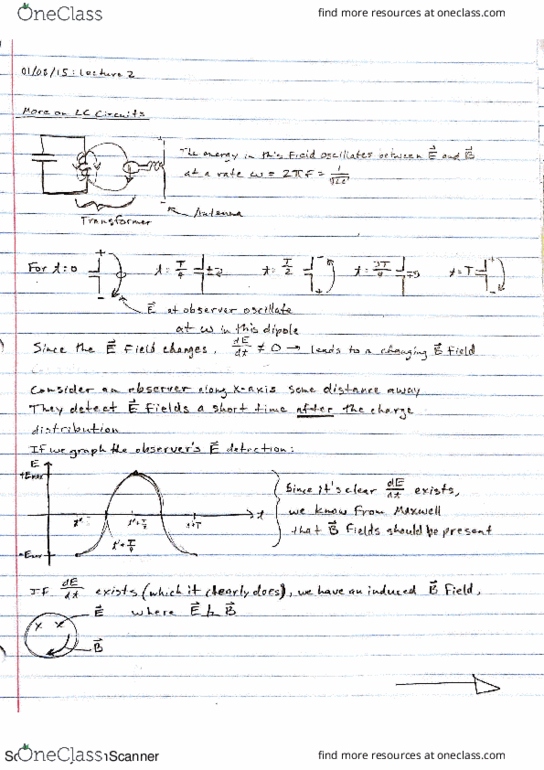 OneClass
find more resources at oneclass.com
01/08/15: Lecture 2
More on LC Circuits
The energy in this field oscillates between E⃗ and B⃗
at a rate ω = 2πf = 1/√LC
Antenna
Transformer
For t=0 + - t= T/4 t= T/2 - + t= 3T/4 t=T + -
E⃗ at observer oscillate
at ω in this dipole
Since the E⃗ field changes, dE/dt ≠ 0 → leads to a changing B⃗ field
Consider an observer along x-axis some distance away
They detect E⃗ fields a short time after the charge
distribution
If we graph the observer's E⃗ detection:
E
+Emax
Since it's clear dE/dt exists,
we know from Maxwell
that B⃗ fields should be present
t
t' t'+T/2 t'+T
t'+T/4
-Emax
If dE/dt exists (which it clearly does), we have an induced B⃗ field,
E⃗ where E⃗ ⊥ B⃗
x x
B⃗
OneClass
Scanner
find more resources at oneclass.com